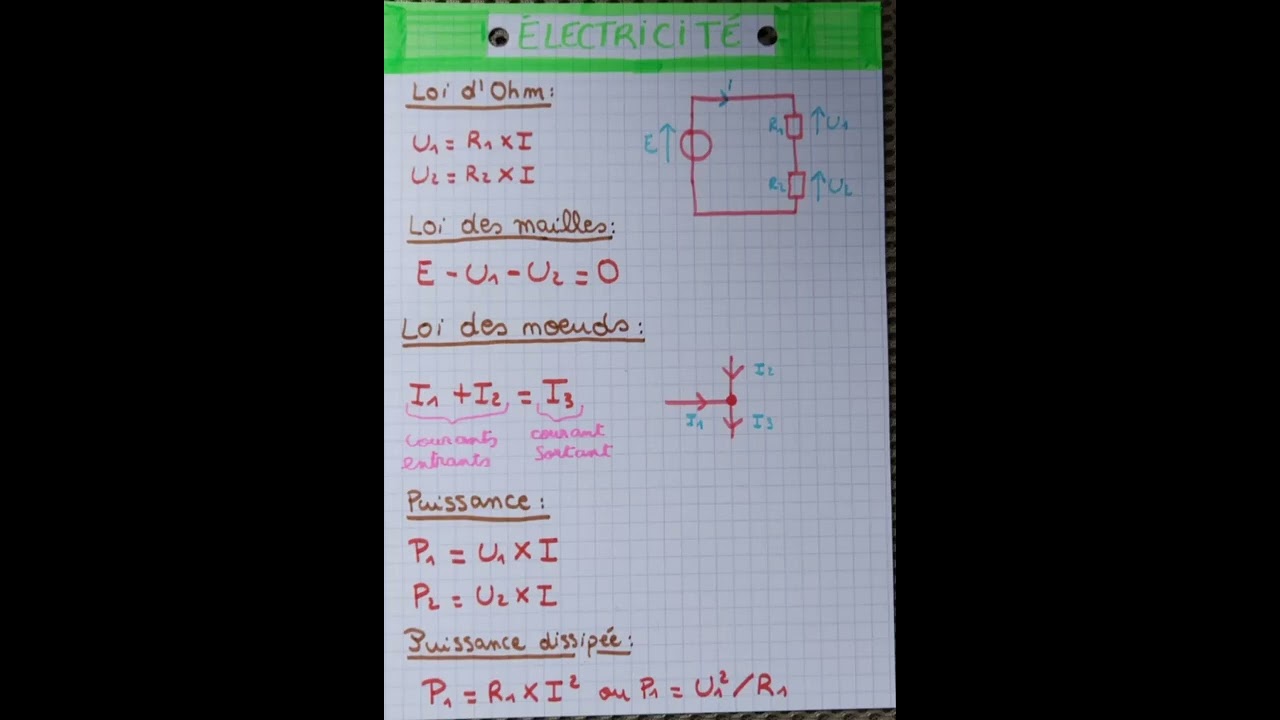 ÉLECTRICITÉ
Loi d'Ohm:
U1 = R1 × I
U2 = R2 × I
I
E
R1
U1
R2
U2
Loi des mailles:
E - U1 - U2 = 0
Loi des noeuds:
I1 + I2 = I3
courants
entrants
courant
sortant
I2
I1
I3
Puissance:
P1 = U1 × I
P2 = U2 × I
Puissance dissipée:
P1 = R1 × I² ou P1 = U1²/R1